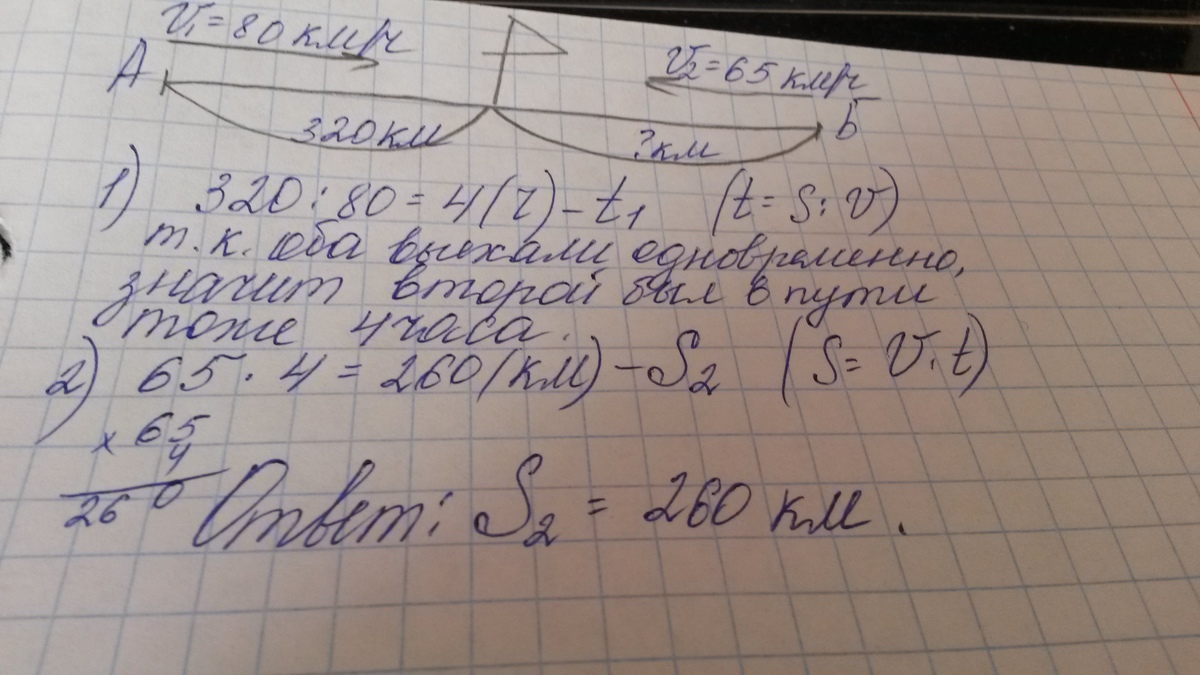 V₁ = 80 км/ч
V₂ = 65 км/ч
А
320 км
? км
Б
1) 320 : 80 = 4 (ч) – t₁ (t = S : V)
т.к. оба выехали одновременно,
значит второй был в пути
тоже 4 часа.
2) 65 · 4 = 260 (км) – S₂ (S = V · t)
× 65
4
260
Ответ: S₂ = 260 км.